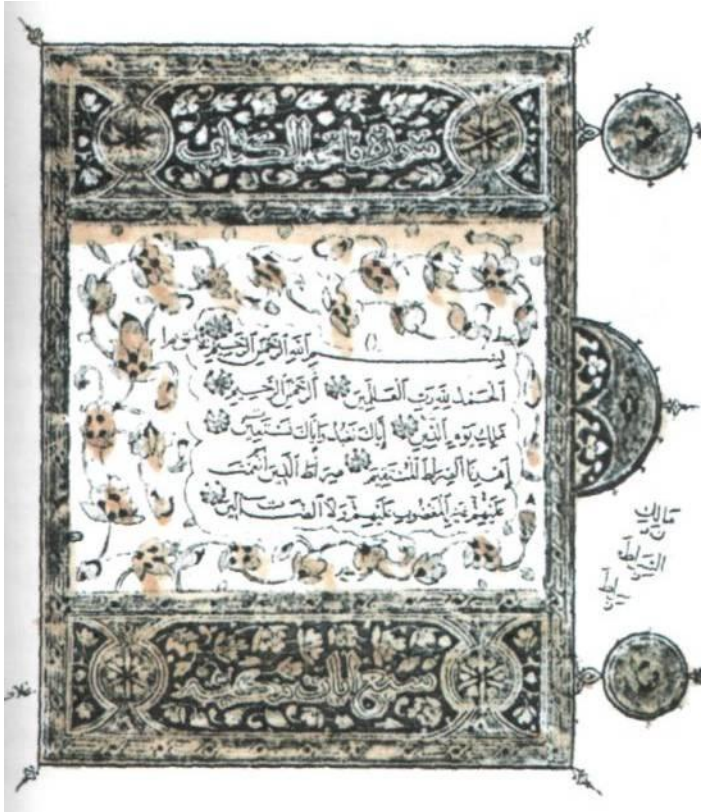 سورة فاتحة الكتاب
بِسْمِ اللَّهِ الرَّحْمَٰنِ الرَّحِيمِ
الْحَمْدُ لِلَّهِ رَبِّ الْعَالَمِينَ الرَّحْمَٰنِ الرَّحِيمِ
مَلِكِ يَوْمِ الدِّينِ إِيَّاكَ نَعْبُدُ وَإِيَّاكَ نَسْتَعِينُ
اهْدِنَا الصِّرَاطَ الْمُسْتَقِيمَ صِرَاطَ الَّذِينَ أَنْعَمْتَ
عَلَيْهِمْ غَيْرِ الْمَغْضُوبِ عَلَيْهِمْ وَلَا الضَّالِّينَ
سبع ايات مكية